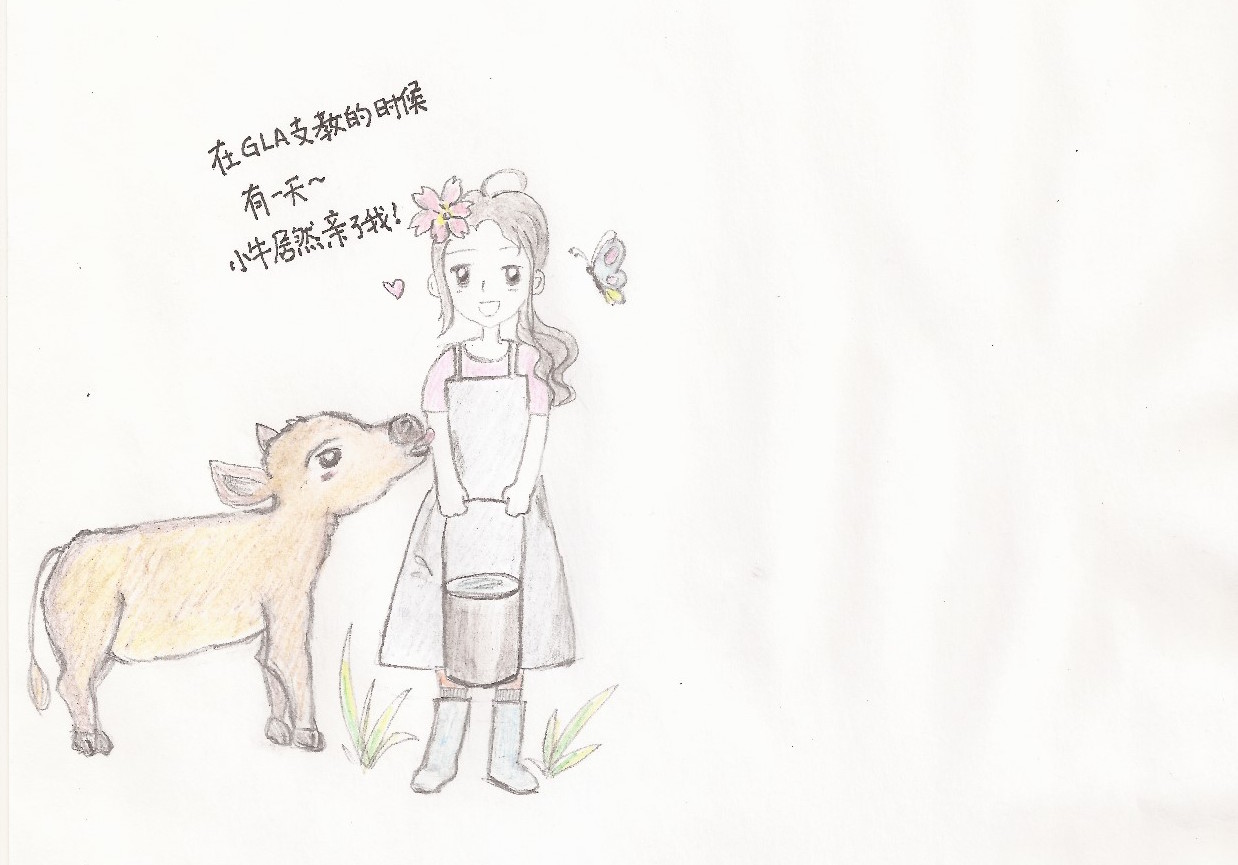 在GLA支教的时候
有一天~
小牛居然亲了我!